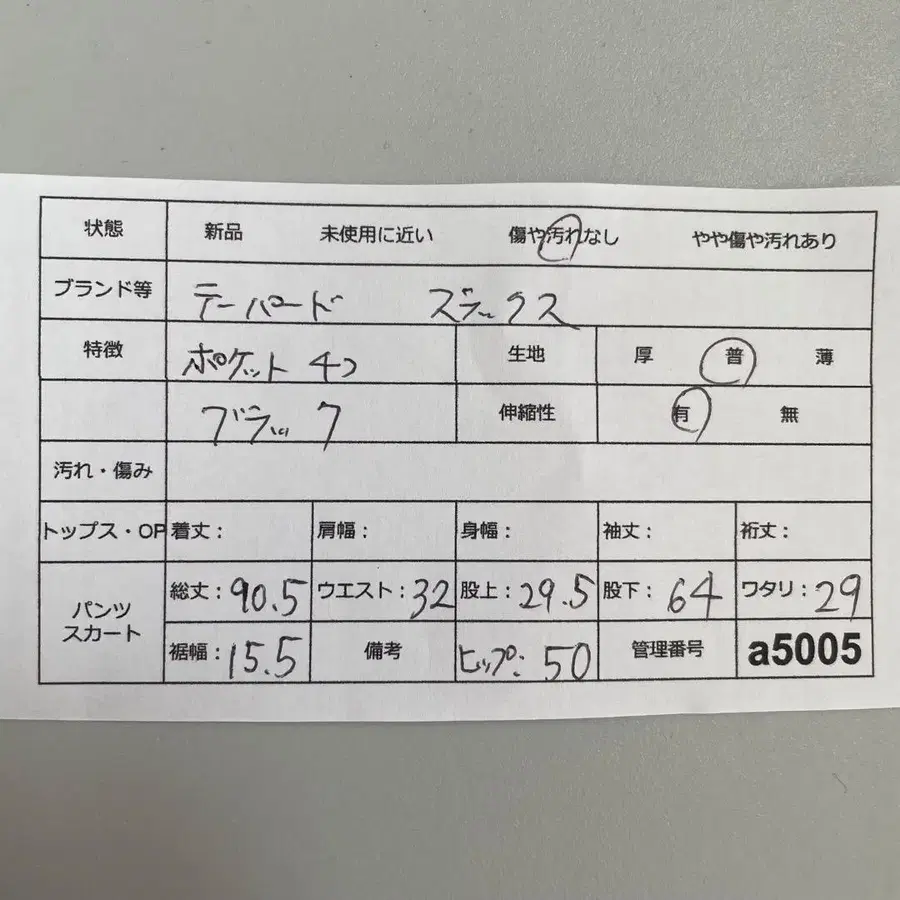 状態 新品 未使用に近い 傷や汚れなし やや傷や汚れあり
ブランド等 テーパード ズラックス
特徴 ポケット 4つ 生地 厚 普 薄
ブラック 伸縮性 有 無
汚れ・傷み
トップス・OP 着丈: 肩幅: 身幅: 袖丈: 裄丈:
パンツ スカート 総丈:90.5 ウエスト:32 股上:29.5 股下:64 ワタリ:29
裾幅:15.5 備考 ヒップ:50 管理番号 a5005